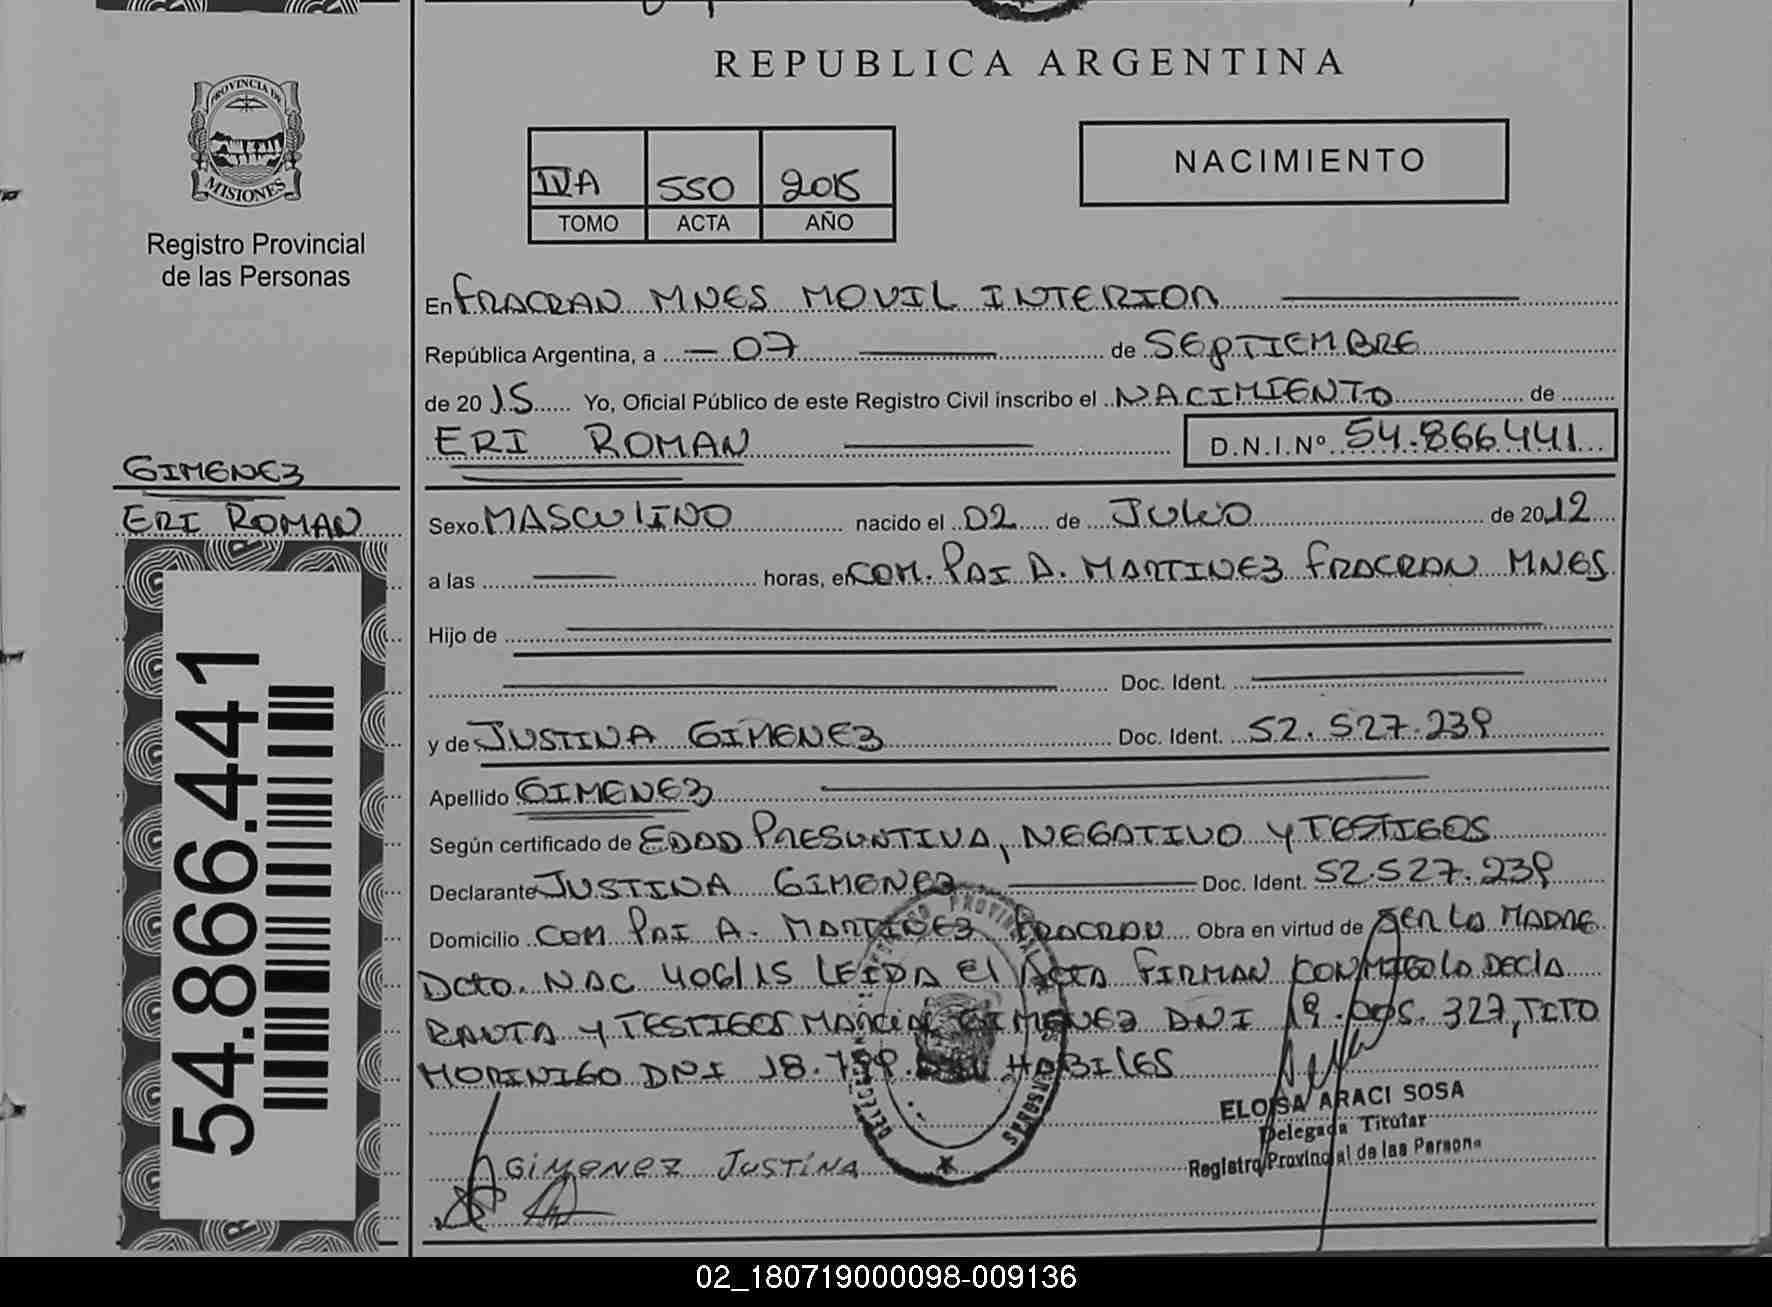 REPUBLICA ARGENTINA
PROVINCIA DE
MISIONES
Registro Provincial
de las Personas
IVA 550 2015
TOMO ACTA AÑO
NACIMIENTO
En FRACRAN MNES MOVIL INTERIOR
República Argentina, a 07 de SEPTIEMBRE
de 2015 Yo, Oficial Público de este Registro Civil inscribo el NACIMIENTO de
ERI ROMAN D.N.I.Nº 54.866.441
GIMENEZ
ERI ROMAN
54.866.441
Sexo MASCULINO nacido el 02 de JULIO de 2012
a las horas, en COM. PAI A. MARTINEZ FRACRAN MNES
Hijo de
Doc. Ident.
y de JUSTINA GIMENEZ Doc. Ident. 52.527.239
Apellido GIMENEZ
Según certificado de EDAD PRESUNTIVA, NEGATIVO Y TESTIGOS
Declarante JUSTINA GIMENEZ Doc. Ident. 52.527.239
Domicilio COM PAI A. MARTINEZ FRACRAN Obra en virtud de SER LA MADRE
Dcto. NAC 406/15 LEIDA El ACTA FIRMAN CONMIGO LA DECLA
RANTA Y TESTIGOS GIMENEZ DNI 327, TITO
MORINIGO DNI 18. HABILES
ELOISA ARACI SOSA
Delegada Titular
Registro Provincial de las Persona
GIMENEZ JUSTINA
02_180719000098-009136